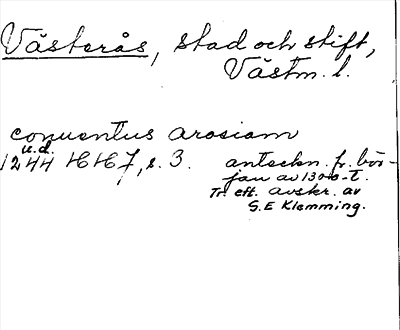 Västerås, stad och stift,
Västm. l.
conuentus arosiam
u.d.
1244 HH 7, s. 3. anteckn. fr. bör-
jan av 1300-t.
Tr. eft. avskr. av
G.E Klemming.